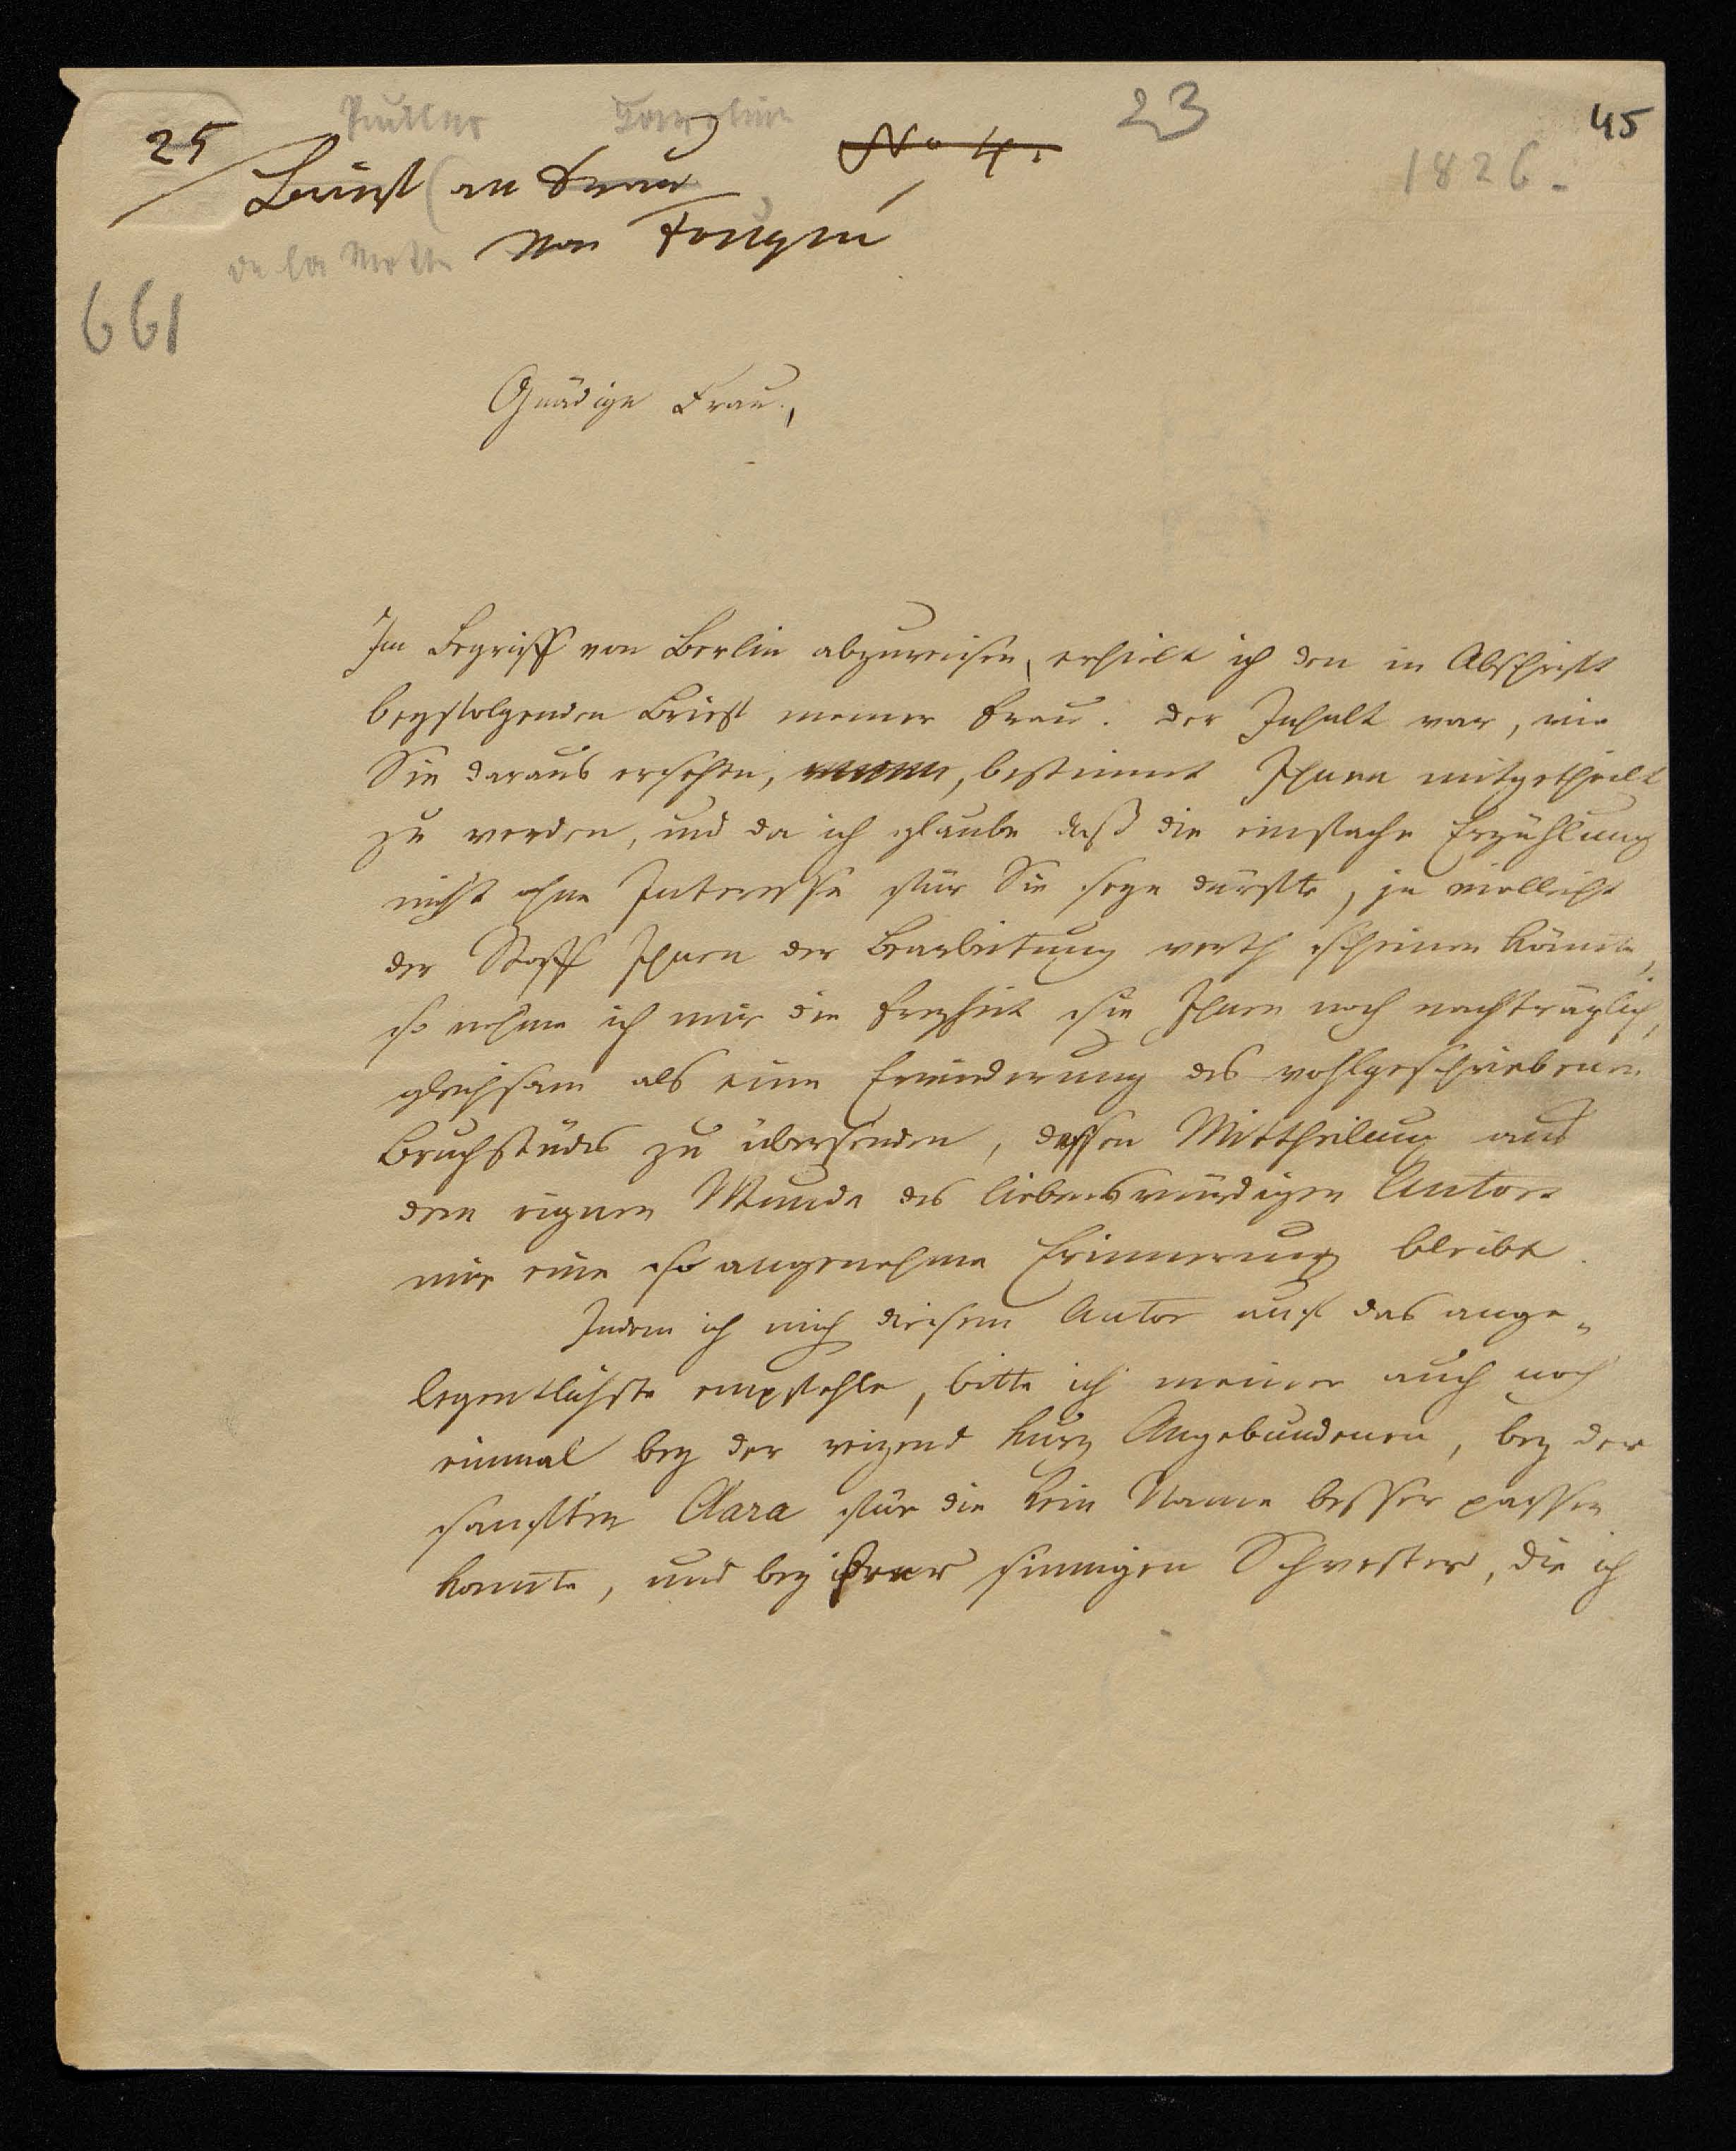 23
45
25
Pückler
No 4.
1826.
Brief (an Frau
de la Motte
von Fouqué
661
Gnädige Frau,
Im Begriff von Berlin abzureisen, erhielt ich den in Abschrift
beyfolgenden Brief meiner Frau. Der Inhalt war, wie
Sie daraus ersehen, bestimmt Ihnen mitgetheilt
zu werden, und da ich glaube daß die einfache Erzählung
nicht ohne Interesse für Sie seyn dürfte, ja vielleicht
der Stoff Ihnen der Bearbeitung werth scheinen könnte,
so nehme ich mir die Freyheit sie Ihnen noch nachträglich,
gleichsam als eine Erwiderung des wohlgeschriebenen
Bruchstücks zu übersenden, dessen Mittheilung aus
dem eignen Munde des liebenswürdigen Autors
mir eine so angenehme Erinnerung bleibt.
Indem ich mich diesem Autor auf das ange-
legentlichste empfehle, bitte ich meiner auch noch
einmal bey der reizend kurz Angebundenen, bey der
sanften Clara für die kein Name besser passen
konnte, und bey ihrer sinnigen Schwester, die ich